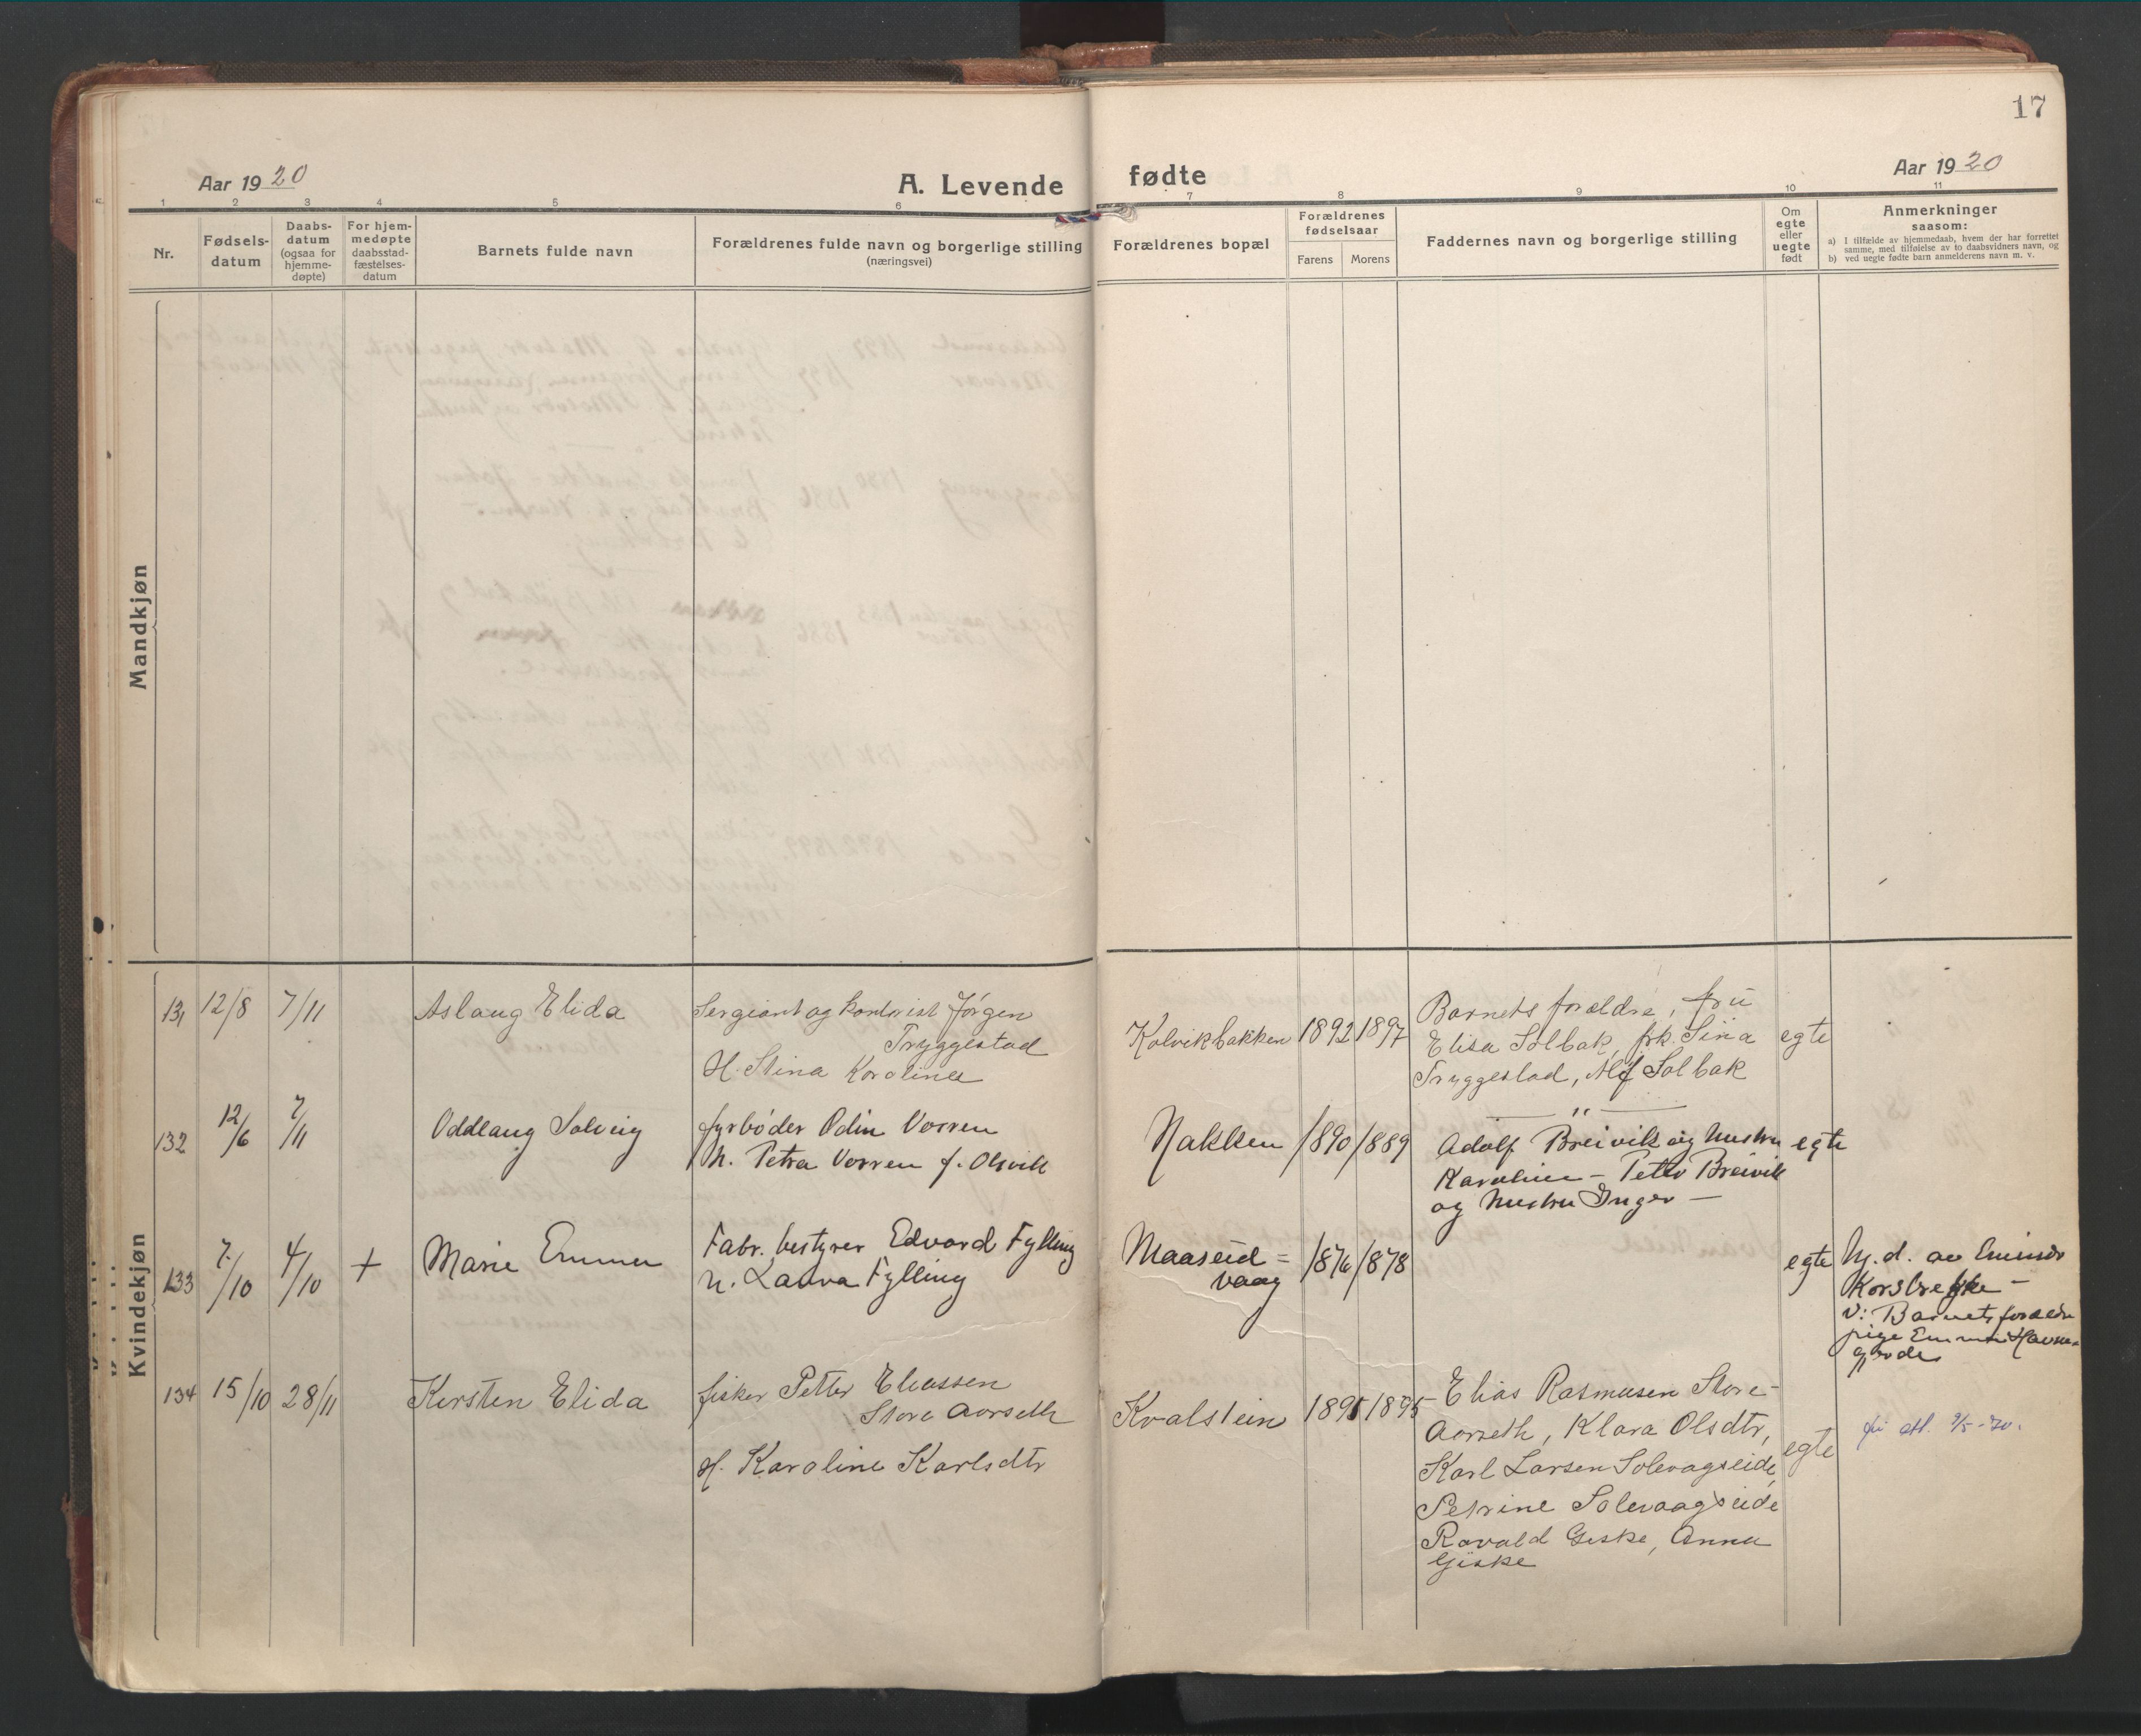 17
Aar 1920
A. Levende fødte
Aar 1920
1 2 3 4 5 6 7 8 9 10 11
Nr.
Fødsels-
datum
Daabs-
datum
(ogsaa for
hjemme-
døpte)
For hjem-
medøpte
daabsstad-
fæstelses-
datum
Barnets fulde navn
Forældrenes fulde navn og borgerlige stilling
(næringsvei)
Forældrenes bopæl
Forældrenes
fødselsaar
Farens Morens
Faddernes navn og borgerlige stilling
Om
egte
eller
uegte
født
Anmerkninger
saasom:
a) I tilfælde av hjemmedaab, hvem der har forrettet
samme, med tilføielse av to daabsvidners navn, og
b) ved uegte fødte barn anmelderens navn m. v.
Mandkjøn
Kvindekjøn
131 12/8 7/11
Aslaug Elida
Sergiant og kontorist Jørgen
Tryggestad
H. Stina Karoline
Kolvikbakken
1892 1897
Barnets forældre, fru
Elisa Solbak, frk. Sina
Tryggestad, Alf Solbak
egte
132 12/6 7/11
Oddlaug Solveig
fyrbøder Odin Vorren
h. Petra Vorren f. Olsvik
Nakken
1890 1889
— " —
Adolf Breivik og hustru
Karoline – Petter Breivik
og hustru Inger –
egte
133 7/10 4/10 +
Marie Emma
Fabr. bestyrer Edvard Fylling
h. Laura Fylling
Maaseid=
vaag
1876 1878
egte
hj. d. av
Korsbrekke –
v: Barnets forældre
pige Emma
134 15/10 28/11
Kirsten Elida
fisker Petter Eliassen
Store Aarseth
H. Karoline Karlsdtr
Kvalstein
1895
Elias Rasmusen Store-
Aarseth, Klara Olsdtr,
Karl Larsen Solevagseide,
Petrine Solevaagseide
Ravald Giske, Anna
Giske
egte
att. 9/5-70.